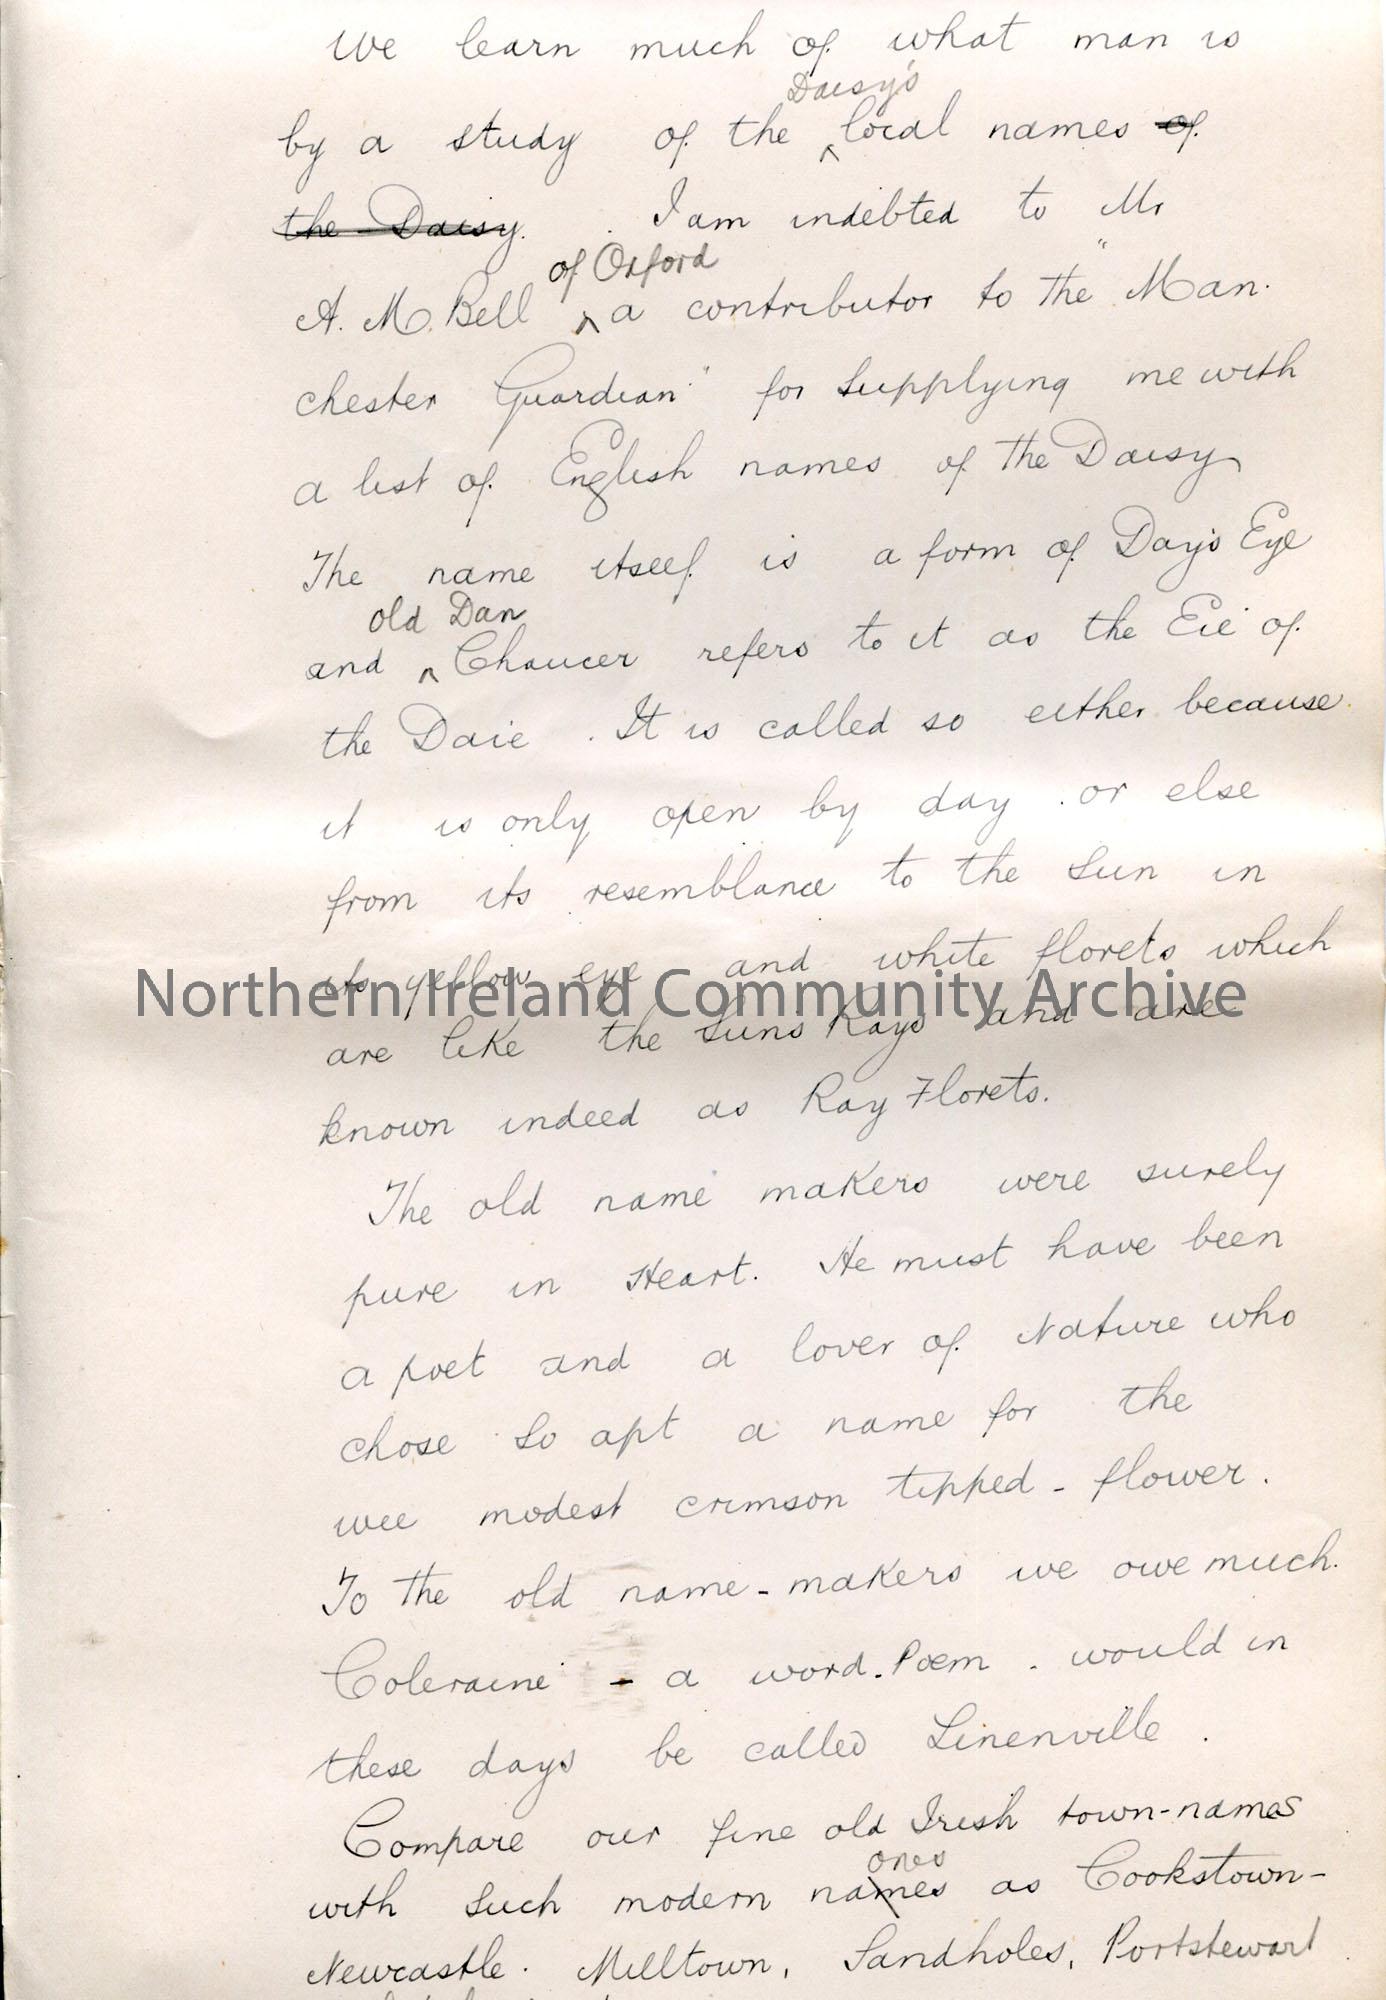 We learn much of what man is
Daisy's
by a study of the local names of
the Daisy. I am indebted to Mr
of Oxford
A. M. Bell a contributor to the "Man-
chester Guardian" for supplying me with
a list of English names of the Daisy
The name itself is a form of Day's Eye
old Dan
and Chaucer refers to it as the Eie of
the Daie. It is called so either because
it is only open by day or else
from its resemblance to the Sun in
its yellow eye and white florets which
Northern Ireland Community Archive
are like the Suns Rays and are
known indeed as Ray Florets.
The old name makers were surely
pure in Heart. He must have been
a poet and a lover of Nature who
chose so apt a name for the
wee modest crimson tipped - flower.
To the old name-makers we owe much.
Coleraine - a word-Poem - would in
these days be called Linenville.
Compare our fine old Irish town-names
ones
with such modern names as Cookstown-
Newcastle. Milltown, Sandholes, Portstewart